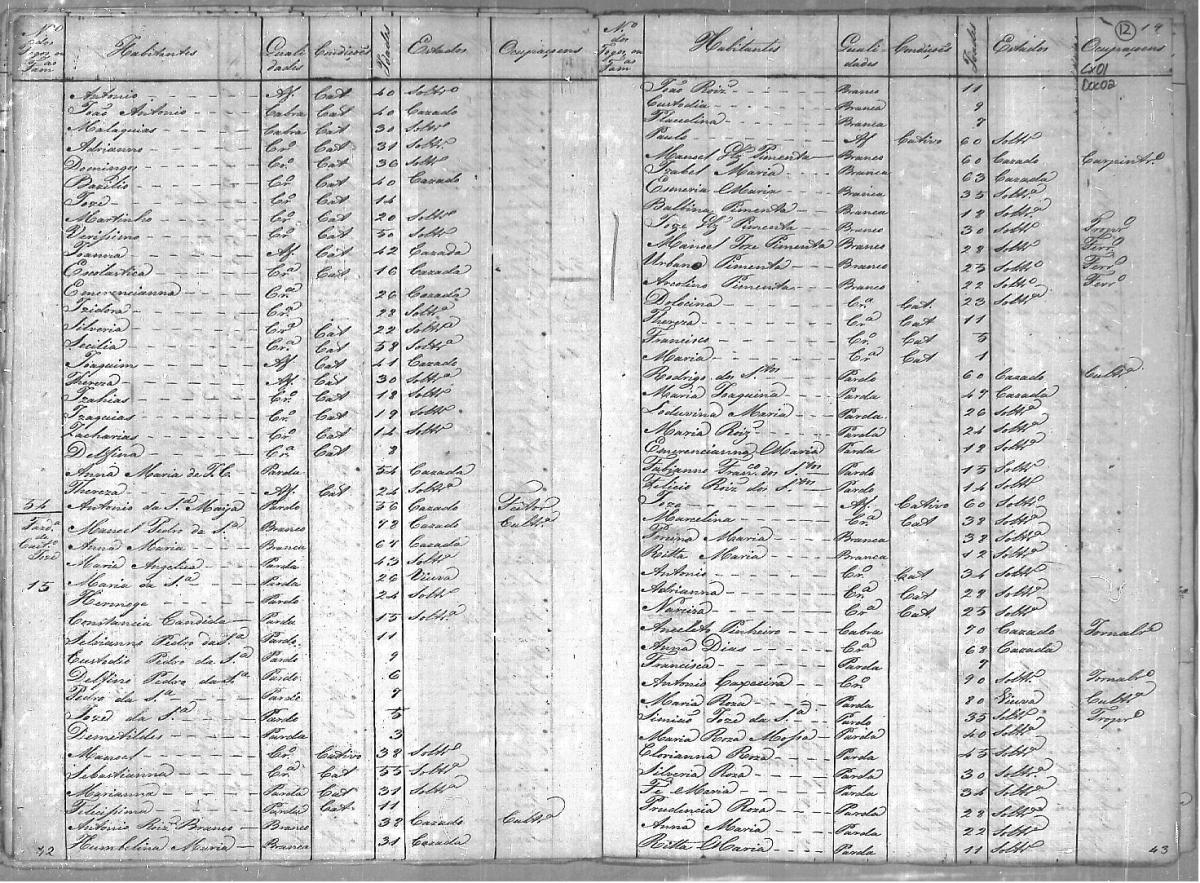 Nº dos Fogos ou Famas Habitantes Qualidades Condições Idades Estados Ocupaçoens
Antonio Af. Cat 40 Soltrº
João Antonio Cabra Cat 40 Cazado
Malaquias Cabra Cat 30 Soltrº
Adrianno Crº Cat 31 Soltrº
Domingos Crº Cat 36 Soltrº
Bazilio Crº Cat 40 Cazado
Joze Crº Cat 14
Martinho Crº Cat 20 Soltrº
Verissimo Crº Cat 50 Soltrº
Joanna Af. Cat 42 Cazada
Escolastica Crª Cat 16 Cazada
Emerencianna Crª 26 Cazada
Izidora Crª 28 Soltrª
Silveria Crª Cat 22 Soltrª
Secilia Crª Cat 58 Soltrª
Joaquim Af. Cat 41 Cazado
Thereza Af. Cat 30 Soltrª
Izahias Crº Cat 18 Soltrº
Izaquias Crº Cat 19 Soltrº
Zacharias Crº Cat 14 Soltrº
Delfina Crª Cat 8
Anna Maria de J. C. Parda 54 Cazada
Thereza Af. Cat 24 Soltrª
54 Antonio da Sª Maya Pardo 56 Cazado Feitor
Manoel Pedro da Sª Branco 78 Cazado Cultrª
Anna Maria Branca 64 Cazada
Maria Angelica Parda 43 Soltrª
15 Maria da Sª Parda 26 Viuva
Hermoge Pardo 24 Soltrº
Constancia Candida Parda 15 Soltrª
Pedro da Sª Pardo 11
Custodio Pedro da Sª Pardo 9
Delfino Pedro da Sª Pardo 6
Pedro da Sª Pardo 7
Joze da Sª Pardo 5
Demetildes Parda 3
Manoel Crº Cativo 38 Soltrº
Sebastianna Crª Cat 55 Soltrª
Marianna Parda Cat 31 Soltrª
Felicissima Parda Cat. 11
Antonio Roiz Branco Branco 38 Cazado Cultrª
Humbelina Maria Branca 31 Cazada
42
12 19
Nº dos Fogos ou Famas Habitantes Qualidades Condições Idades Estados Ocupaçoens
Cx01
Doc02
João Roiz Branco 11
Custodia Branca 9
Placelina Branca 7
Paulo Af Cativo 60 Soltrº
Manoel Pimenta Branco 60 Cazado Carpintrº
Izabel Maria Branca 63 Cazada
Esmeria Maria Branca 35 Soltrª
Balbina Pimenta Branca 18 Soltrª
Joze Pimenta Branco 30 Soltrº Troprº
Manoel Joze Pimenta Branco 28 Soltrº Ferrº
Urbano Pimenta Branco 25 Soltrº Ferº
Arcolino Pimenta Branco 22 Soltrº Ferrº
Dolocina Crª Cat. 23 Soltrª
Thereza Crª Cat 11
Francisco Crº Cat 5
Maria Crª Cat 1
Rodrigo dos Stos Pardo 60 Cazado Cultrª
Maria Joaquina Parda 47 Cazada
Loduvina Maria Parda 26 Soltrª
Maria Roiz Parda 24 Soltrª
Emerencianna Maria Parda 18 Soltrª
Fabianno Franco dos Stos Pardo 15 Soltrº
Felicio Roiz dos Stos Pardo 14 Soltrº
Joze Af. Cativo 60 Soltrº
Marcelina Crª Cat 38 Soltrª
Bruna Maria Branca 38 Soltrª
Ritta Maria Branca 12 Soltrª
Antonio Crº Cat 34 Soltrº
Adrianna Crª Cat 28 Soltrª
Narciza Crª Cat 25 Soltrª
Anacleto Pinheiro Cabra 70 Cazado Jornalrº
Anna Dias Crª 68 Cazada
Francisca Parda 7
Antonio Capoeira Crº 90 Soltrº Jornalrº
Maria Roza Parda 80 Viuva Cultrª
Simião Joze da Sª Pardo 35 Soltrº Troprº
Maria Roza Parda 40 Soltrª
Florianna Roza Parda 45 Soltrª
Silveria Roza Parda 30 Soltrª
Fé Maria Parda 34 Soltrª
Prudencia Roza Parda 28 Soltrª
Anna Maria Parda 22 Soltrª
Ritta Maria Parda 11 Soltrª
43